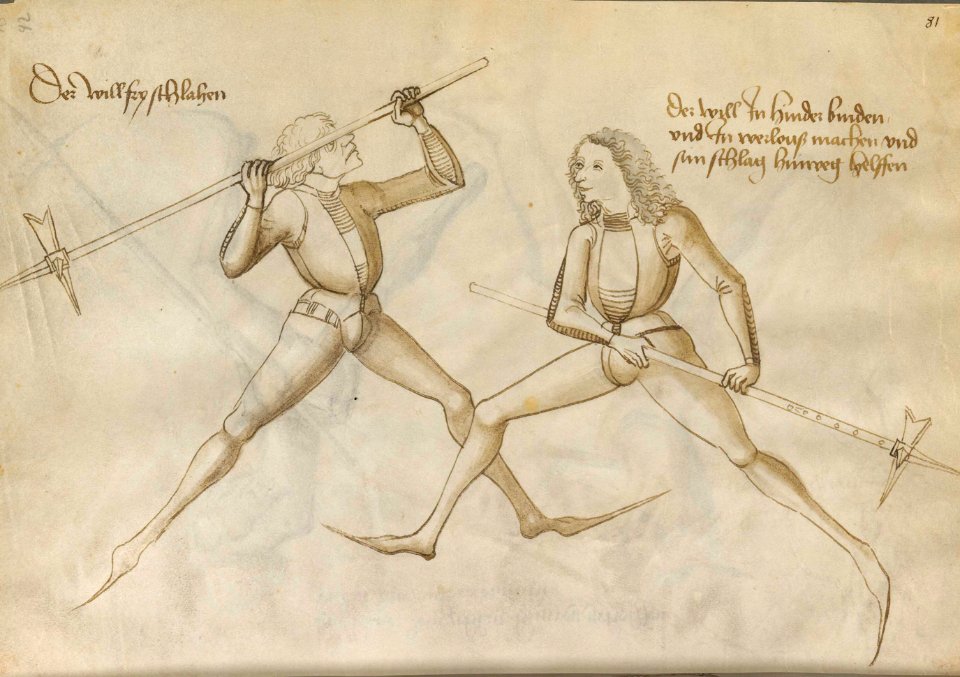 Der will fry schlahen
Der will In hinder binden
vnd In werlouß machen vnd
sin schlag hinweg helffen
81